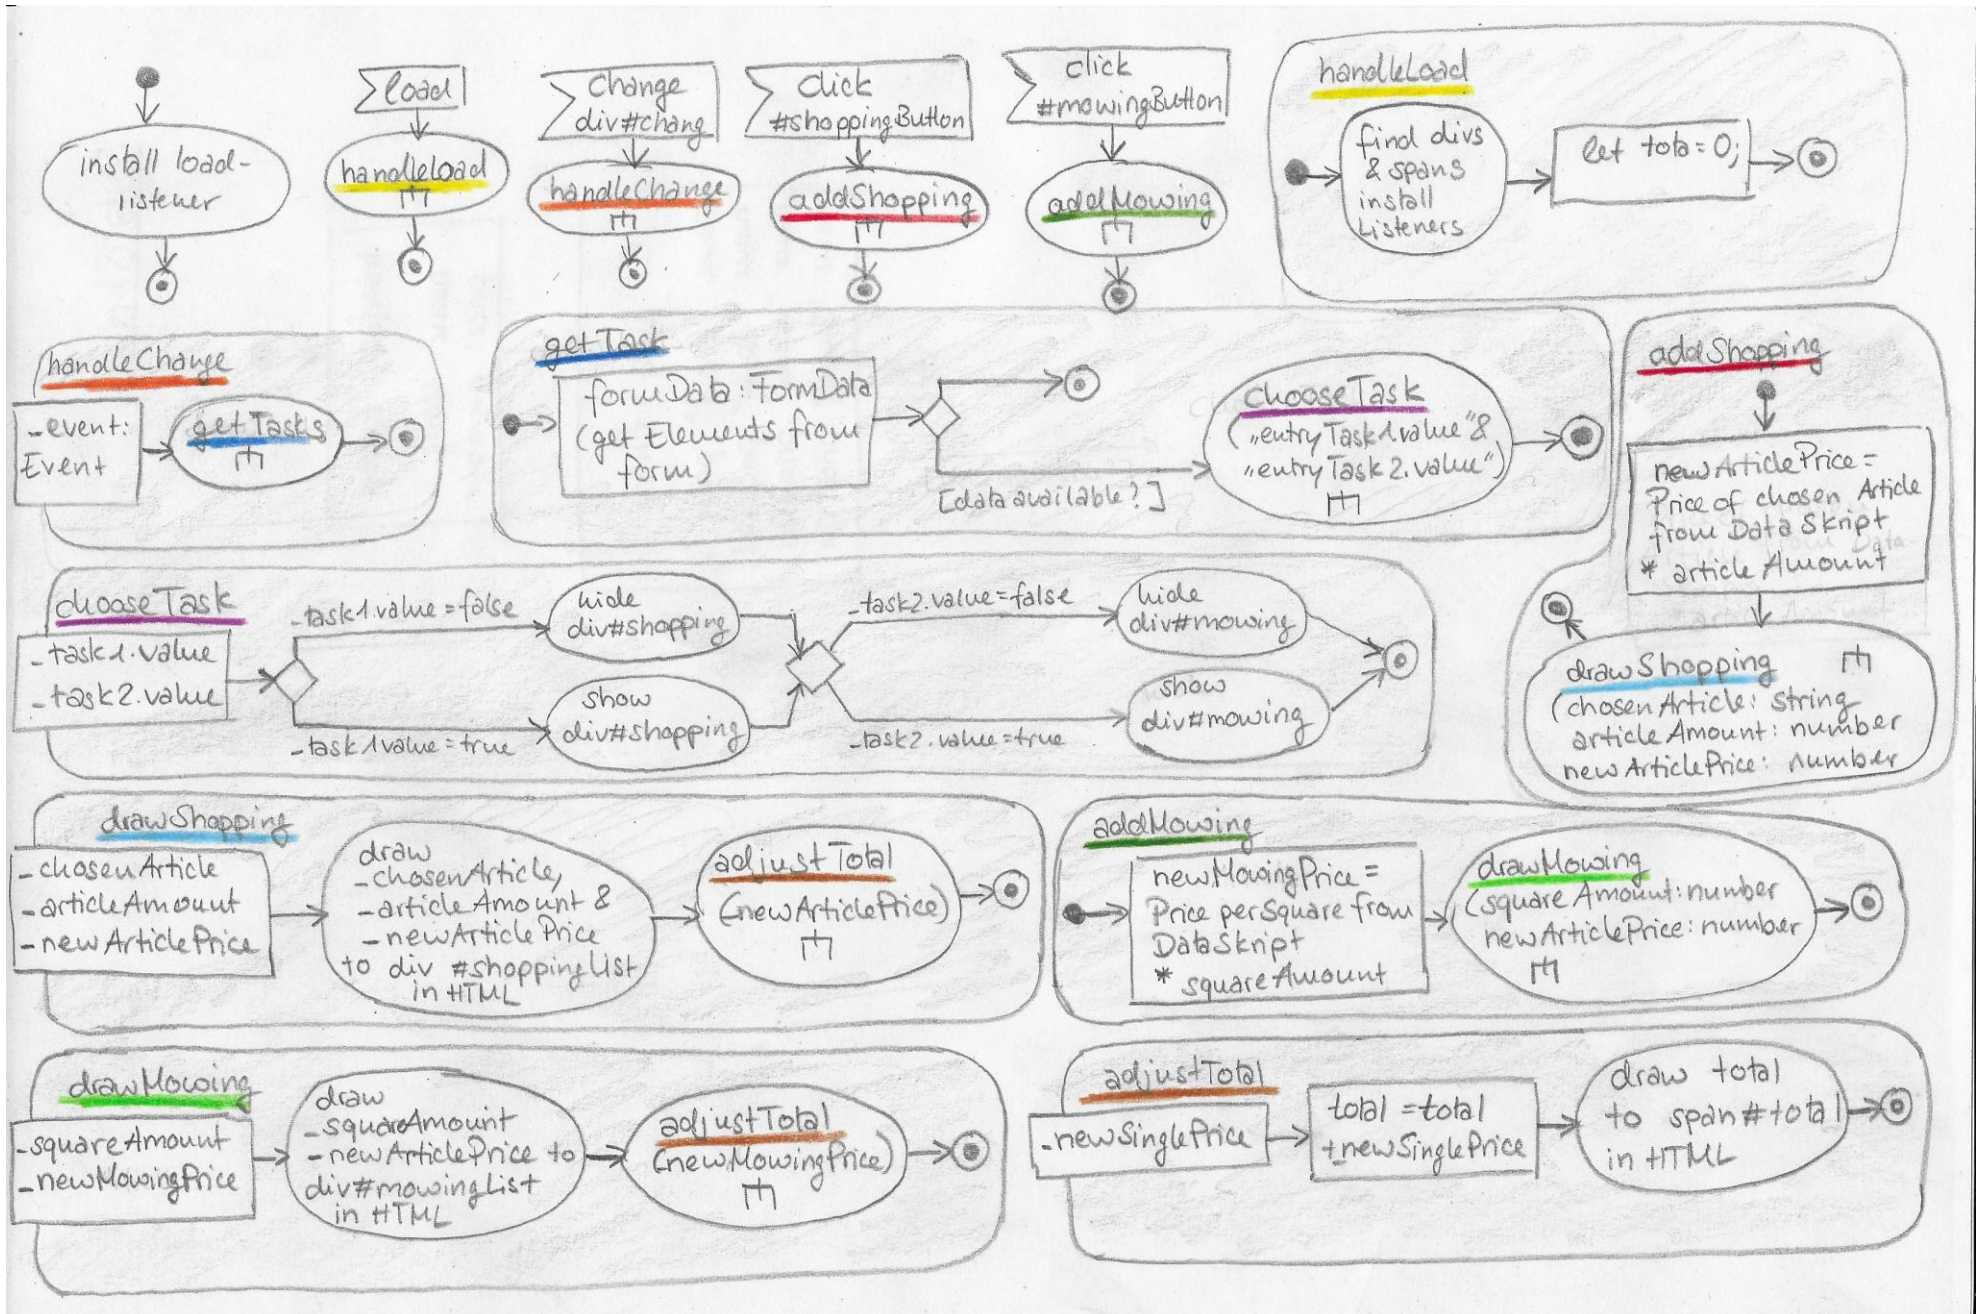 install load-
listener
load
handleLoad
change
div#chang
handleChange
click
#shoppingButton
addShopping
click
#mowingButton
addMowing
handleLoad
find divs
& spans
install
Listeners
let tota = 0;
handleChange
-event:
Event
getTasks
getTask
formData: FormData
(get Elements from
form)
[data available?]
chooseTask
(„entryTask1.value" &
„entryTask2.value")
addShopping
newArticlePrice =
Price of chosen Article
from Data Skript
* articleAmount
drawShopping
(chosenArticle: string
articleAmount: number
newArticlePrice: number
chooseTask
-task1.value
-task2.value
-task1.value=false
hide
div#shopping
-task1value=true
show
div#shopping
-task2.value=false
hide
div#mowing
-task2.value=true
show
div#mowing
drawShopping
-chosenArticle
-articleAmount
-newArticlePrice
draw
-chosenArticle,
-articleAmount &
-newArticlePrice
to div #shoppingList
in HTML
adjustTotal
(newArticlePrice)
addMowing
newMowingPrice =
Price perSquare from
DataSkript
* squareAmount
drawMowing
(squareAmount: number
newArticlePrice: number
drawMowing
-squareAmount
-newMowingPrice
draw
-squareAmount
-newArticlePrice to
div#mowingList
in HTML
adjustTotal
(newMowingPrice)
adjustTotal
-newSinglePrice
total = total
+newSinglePrice
draw total
to span#total
in HTML